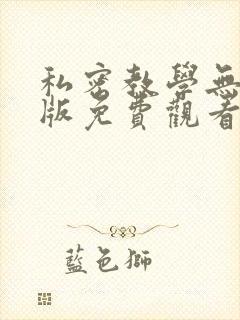 私密教學無
版免費觀看
藍色獅